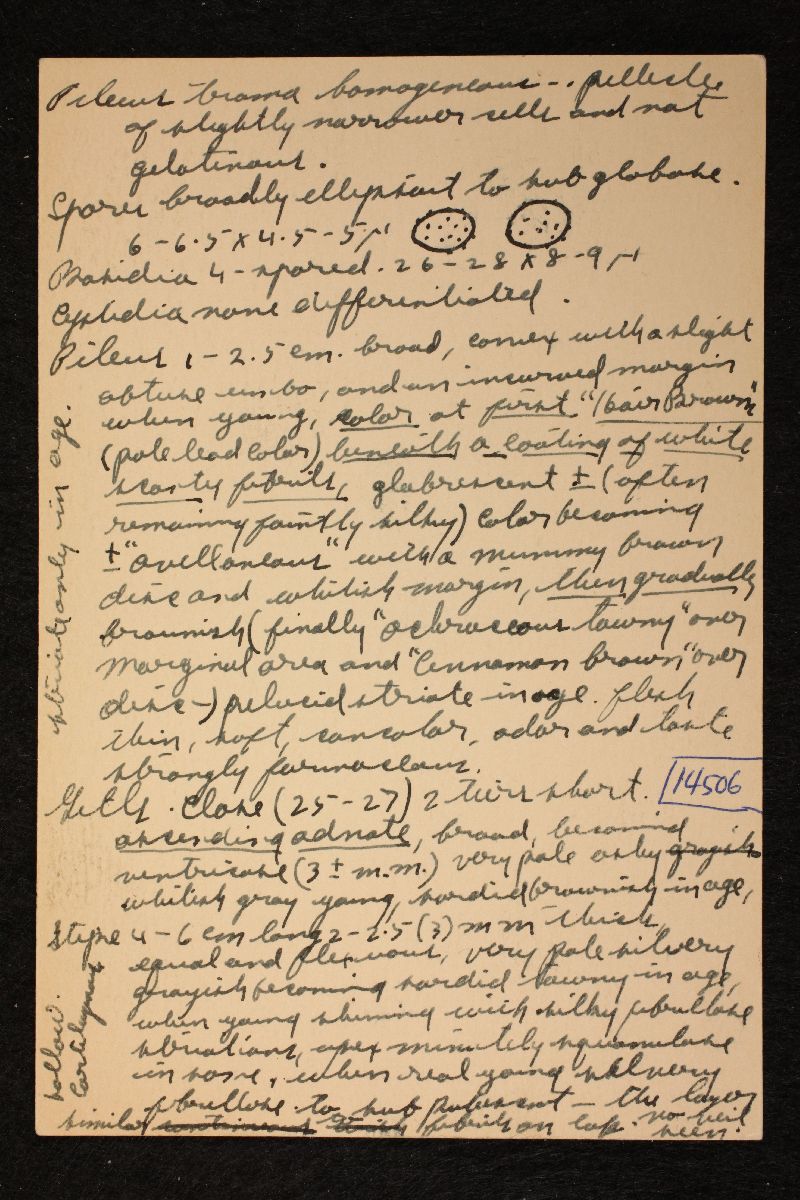 Pileus trama homogeneous - . pellicle
of slightly narrower cells and not
gelatinous .
Spores broadly ellipsoid to subglobose .
6-6.5 x 4.5-5 µ
Basidia 4-spored. 26-28 x 8-9 µ
Cystidia none differentiated .
Pileus 1-2.5 cm. broad, convex with a slight
obtuse umbo, and an incurved margin
when young, color at first "Hair Brown"
(pale lead color) beneath a coating of white
scanty fibrils, glabrescent ± (often
remaining faintly silky) color becoming
± "avellaneous" with a mummy brown
disc and whitish margin, then gradually
brownish (finally "ochraceous tawny" over
marginal area and "Cinnamon brown" over
disc -) pelucid striate in age. flesh
thin, soft, concolor, odor and taste
strongly farinaceous.
striate only in age.
14506
Gills . Close (25-27) 2 tiers short.
ascending adnate, broad, becoming
ventricose (3 ± m.m.) very pale ashy grayish
whitish gray young, sordid brownish in age,
Stipe 4-6 cm long 2-2.5 (3) mm thick,
equal and flexuous, very pale silvery
grayish becoming sordid tawny in age,
when young shining with silky fibrillose
striations, apex minutely squamulose
in some, when real young silvery
fibrillose to sub pubescent - the layer
similar fibrils on cap. no veil
seen.
hollow.
cartilaginous